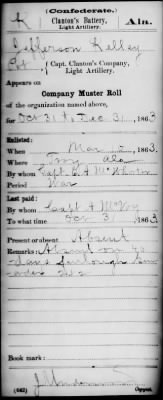 (Confederate.)
K Clanton's Battery, Ala.
Light Artillery.
Jefferson Kelley
Pvt., Capt. Clanton's Company,
Light Artillery.
Appears on
Company Muster Roll
of the organization named above,
for Oct 31 to Dec 31, 1863
Enlisted:
When Mar 1863
Where Troy Ala
By whom Capt
Period War
Last paid:
By whom Capt
To what time Oct 31, 1863
Present or absent Absent
Remarks: Absent on
days furlough
order
Book mark:
(642) Copyist.